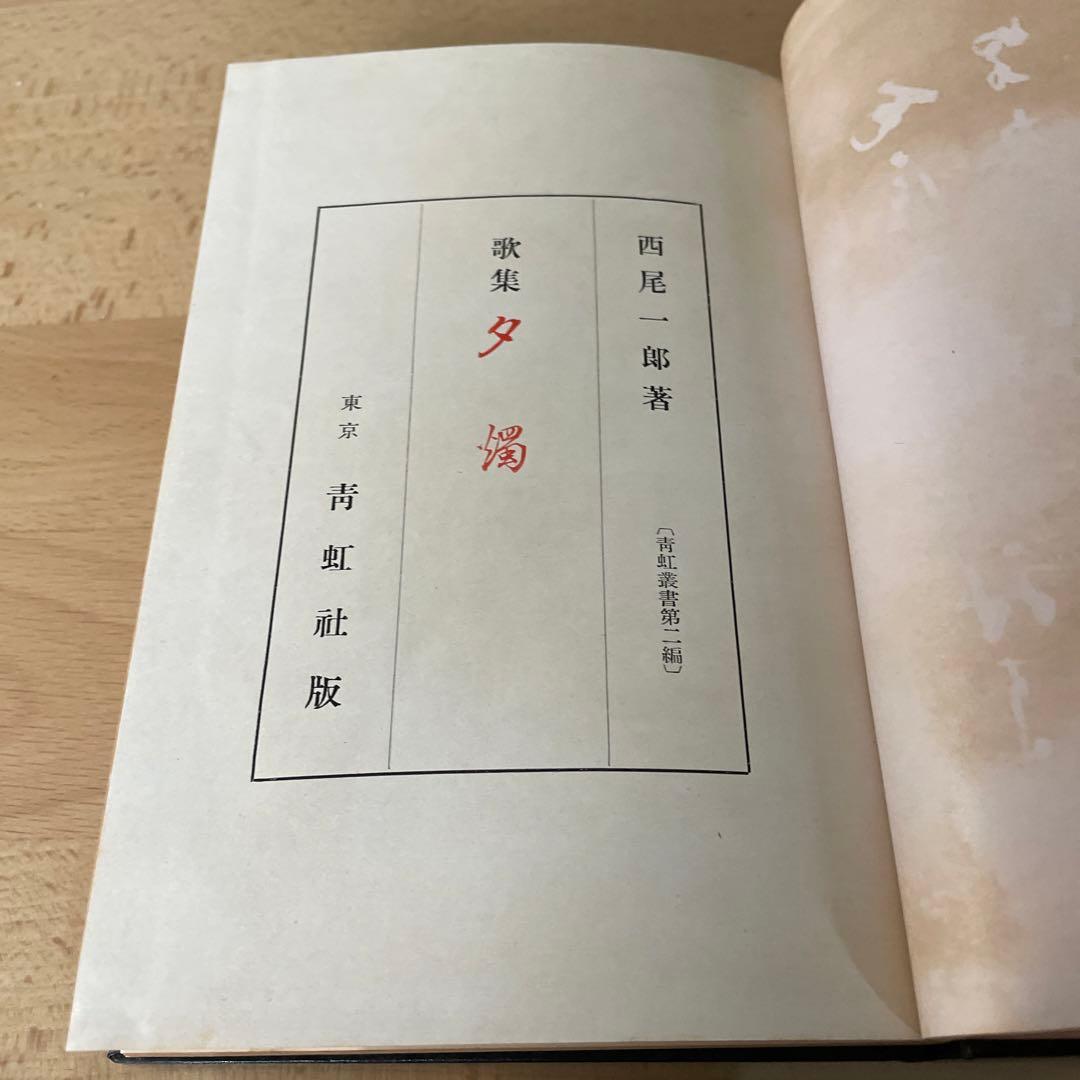 西尾一郎著
〔青虹叢書第二編〕
歌集 夕燭
東京 青虹社版